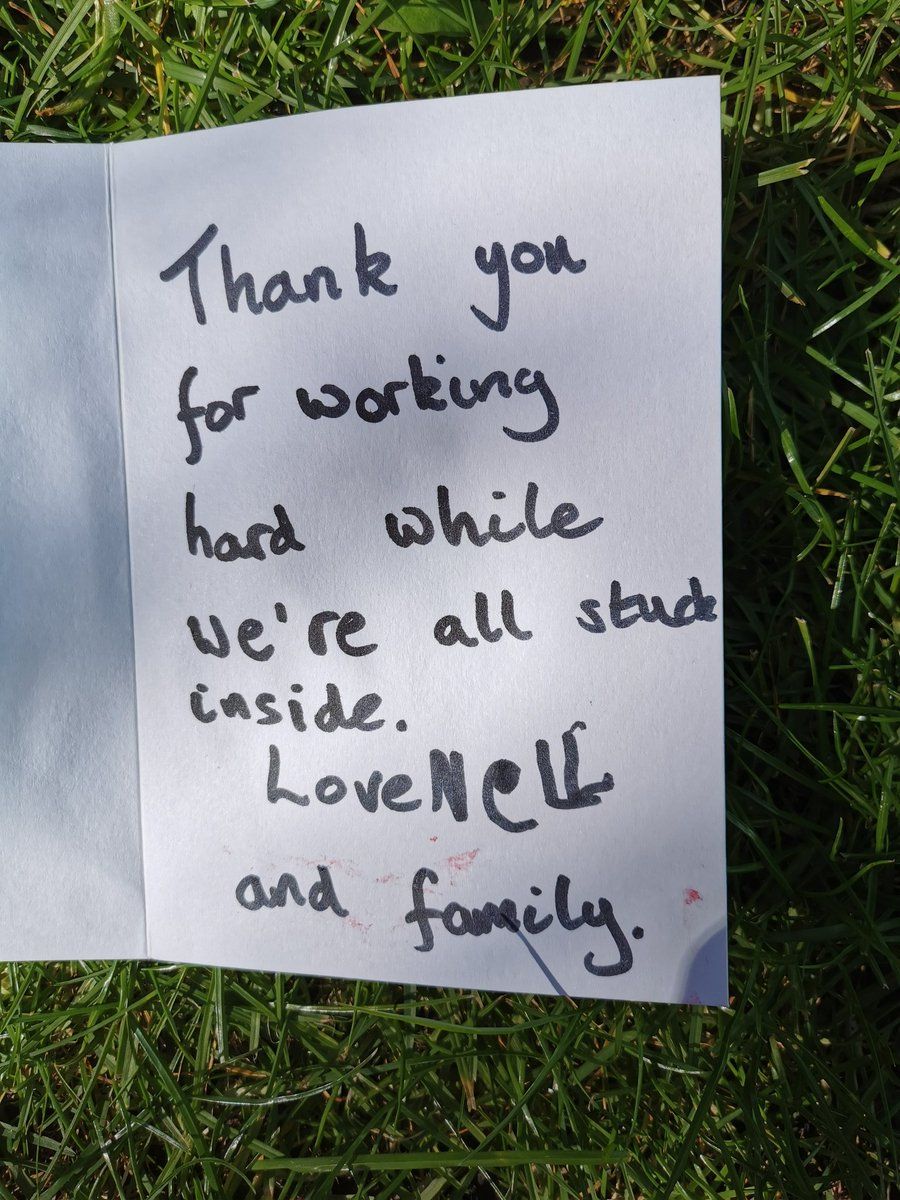 Thank you
for working
hard while
we're all stuck
inside.
Love Nell
and family.